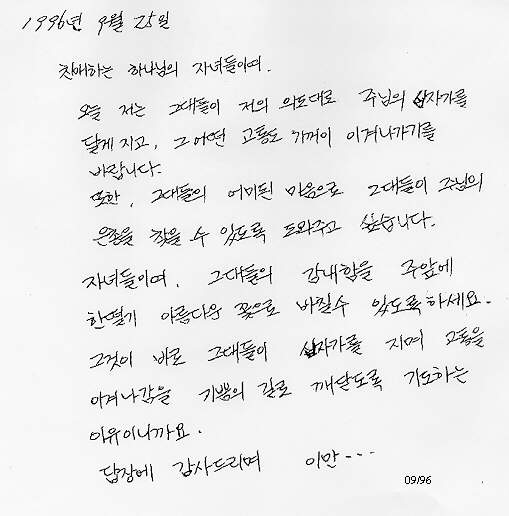 1996년 9월 25일
친애하는 하나님의 자녀들이여.
오늘 저는 그대들이 저의 의도대로 주님의 십자가를
달게 지고, 그 어떤 고통도 기꺼이 이겨나가기를
바랍니다.
또한, 그대들의 어미된 마음으로 그대들이 주님의
은총을 찾을 수 있도록 도와주고 싶습니다.
자녀들이여, 그대들의 감내함을 주앞에
한떨기 아름다운 꽃으로 바칠수 있도록하세요.
그것이 바로 그대들이 십자가를 지며 고통을
이겨나감을 기쁨의 길로 깨닫도록 기도하는
이유이니까요.
답장에 감사드리며 이만---
09/96